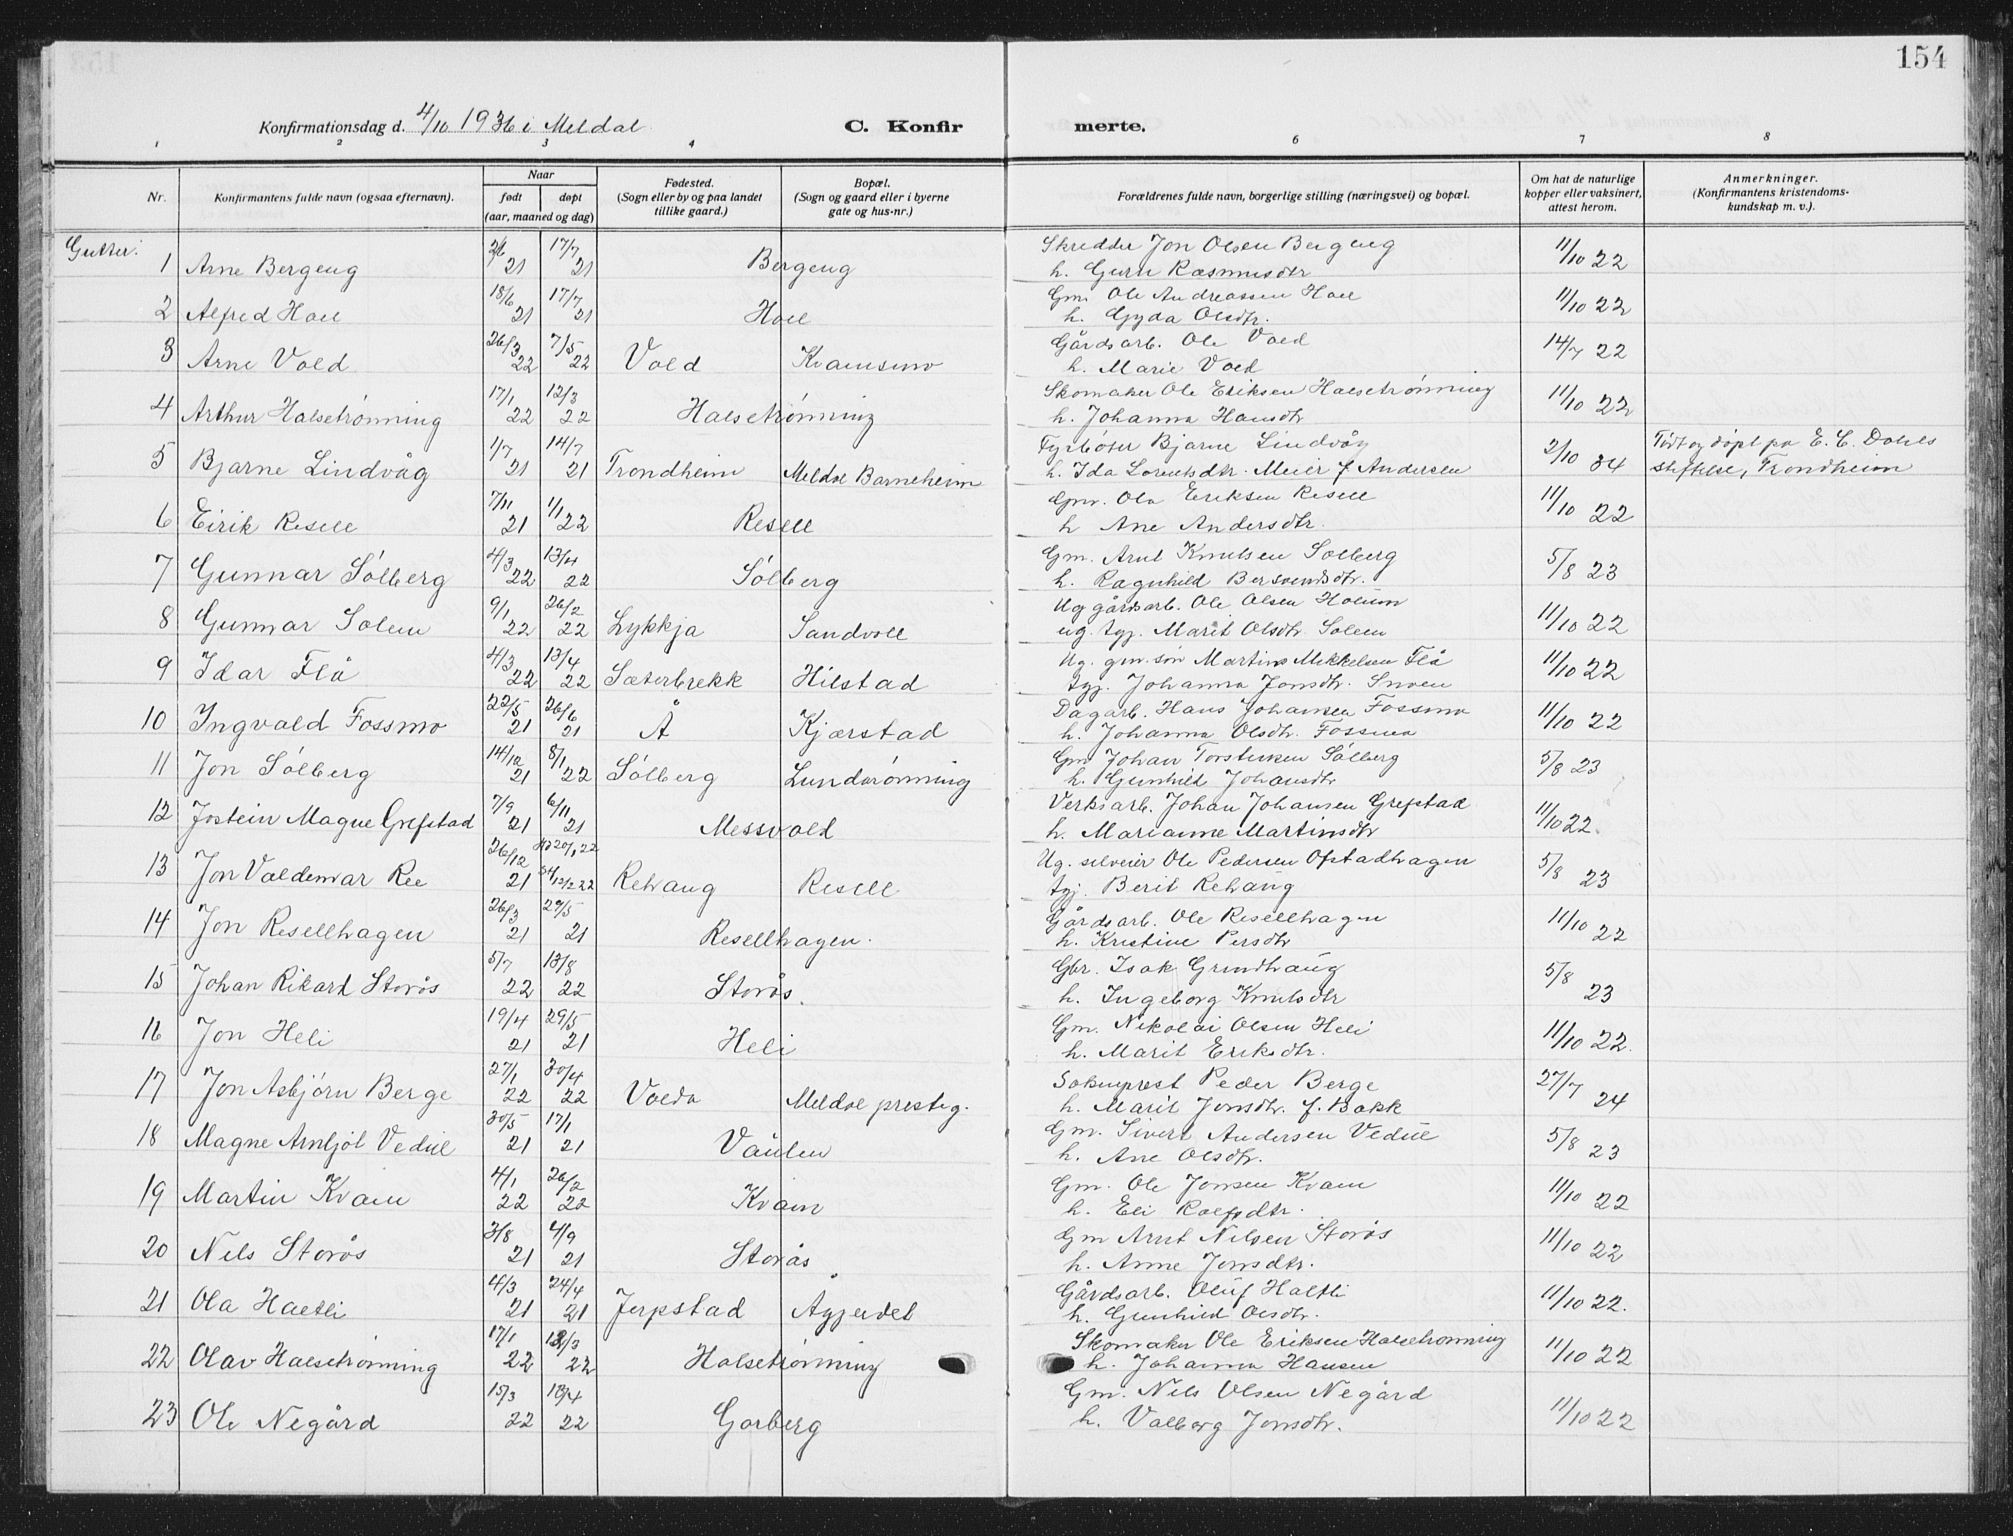 154
Konfirmationsdag d. 4/10 1936 i Meldal. C. Konfirmerte.
1 2 3 4 6 7 8
Nr. Konfirmantens fulde navn (ogsaa efternavn). Naar født døpt (aar, maaned og dag) Fødested. (Sogn eller by og paa landet tillike gaard.) Bopæl. (Sogn og gaard eller i byerne gate og hus-nr.) Forældrenes fulde navn, borgerlige stilling (næringsvei) og bopæl. Om hat de naturlige kopper eller vaksinert, attest herom. Anmerkninger. (Konfirmantens kristendoms-kundskap m. v.).
Gutter:
1 Arne Bergeng 2/6 21 17/7 21 Bergeng Skredder Jon Olsen Bergeng 11/10 22
h. Guru Rasmusdtr
2 Alfred Hoel 18/6 21 17/7 21 Hoel Gm. Ole Andreassen Hoel 11/10 22
h. Gyda Olsdtr.
3 Arne Vold 26/3 22 7/5 22 Vold Kvamsmo Gårdsarb. Ole Vold 14/7 22
h. Marie Vold
4 Arthur Halsetrønning 17/1 22 12/3 22 Halsetrønning Skomaker Ole Eriksen Halsetrønning 11/10 22
h. Johanna Hansdtr
5 Bjarne Lindvåg 1/7 21 14/7 21 Trondheim Meldal Barneheim Fyrbøter Bjarne Lindvåg 2/10 34 Født og døpt på E. C. Dahls
h. Ida Lorentsdtr. Meier f. Andersen stiftelse, Trondheim
6 Eirik Resell 7/11 21 1/1 22 Resell Gm. Ola Eriksen Resell 11/10 22
h Ane Andersdtr.
7 Gunnar Sølberg 4/3 22 13/4 22 Sølberg Gm. Arnt Knutsen Solberg 5/8 23
h. Ragnhild Bersvendsdtr.
8 Gunnar Solem 9/1 22 26/2 22 Lykkja Sandvoll Ug gårdsarb. Ole Olsen Hoium 11/10 22
ug. tyj. Marit Olsdtr Solem
9 Idar Flå 4/3 22 13/4 22 Sæterbrekk Hilstad Ug. gm. søn Martins Mikkelsen Flå 11/10 22
tyj. Johanna Jonsdtr. Snoen
10 Ingvald Fossmo 22/5 21 26/6 21 Å Kjærstad Dagarb. Hans Johansen Fossmo 11/10 22
h. Johanna Olsdtr. Fossmo
11 Jon Sølberg 14/12 21 8/1 22 Sølberg Lundarønning Gm Johan Torstensen Sølberg 5/8 23
h. Gunhild Johansdtr
12 Jostein Magne Grefstad 7/9 21 6/11 21 Messvold Verksarb. Johan Johansen Grefstad 11/10 22.
h. Marianne Martinsdtr
13 Jon Valdemar Ree 26/12 21 Hd 20/1 22 St 12/2 22 Rehaug Resell Ug. selveier Ole Pedersen Ofstadhagen 5/8 23
tyj. Berit Rehaug
14 Jon Resellhagen 26/3 21 29/5 21 Resellhagen. Gårdsarb. Ole Resellhagen 11/10 22
h. Kristine Persdtr
15 Johan Rikard Storås 5/7 22 13/8 22 Storås. Gbr. Isak Grindhaug 5/8 23
h. Ingeborg Knutsdtr
16 Jon Heli 19/4 21 29/5 21 Heli Gm. Nikolai Olsen Heli 11/10 22.
h. Marit Eriksdtr.
17 Jon Asbjørn Berge 27/1 22 30/4 22 Volda Meldal presteg. Soknprest Peder Berge 27/7 24
h. Marit Jonsdtr. f. Bakk
18 Magne Arntjøl Veduel 30/5 21 17/1 21 Vaulen Gm. Sivert Andersen Veduel 5/8 23
h. Ane Olsdtr.
19 Martin Kvam 4/1 22 26/2 22 Kvam Gm. Ole Jonsen Kvam 11/10 22
h. Eli Rolfsdtr.
20 Nils Storås 3/8 21 4/9 21 Storås Gm Arnt Nilsen Storås 11/10 22
h. Anne Jonsdtr.
21 Ola Haltli 4/3 21 24/4 21 Jerpstad Ågjerdet Gårdsarb. Oluf Haltli 11/10 22.
h. Gunhild Olsdtr.
22 Olav Halsetrønning 17/1 22 12/3 22 Halsetrønning Skomaker Ole Eriksen Halsetrønning 11/10 22
h. Johanna Hansen
23 Ole Negård 15/3 22 13/4 22 Gorberg Gm. Nils Olsen Negård 11/10 22
h. Valborg Jonsdtr.